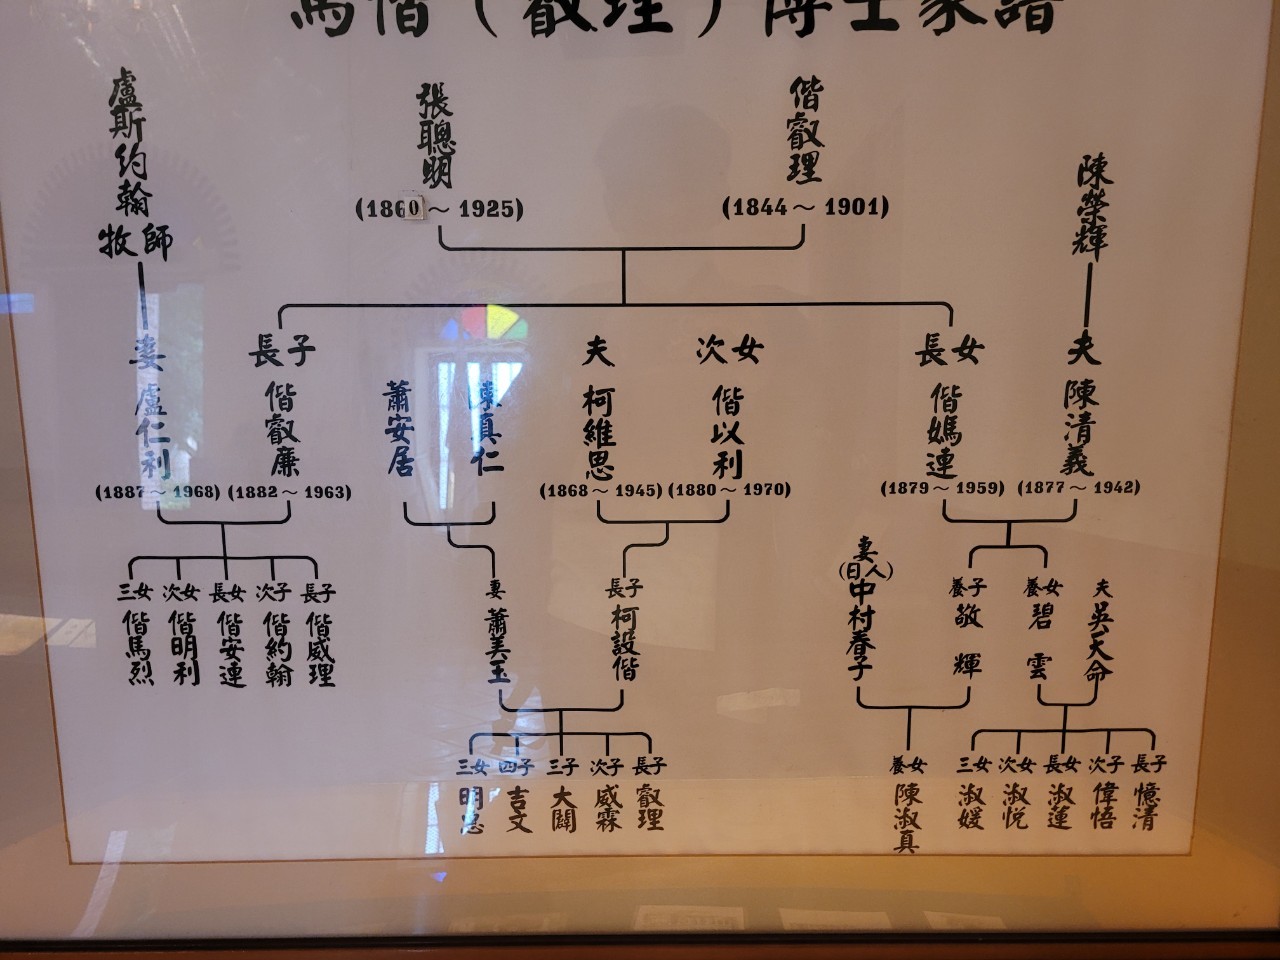 馬偕（叡理）博士家譜
盧斯約翰牧師
張聰明
(1860～1925)
偕叡理
(1844～1901)
陳榮輝
妻 盧仁利
(1887～1968)
長子 偕叡廉
(1882～1963)
蕭安居
陳真仁
夫 柯維思
(1868～1945)
次女 偕以利
(1880～1970)
長女 偕媽連
(1879～1959)
夫 陳清義
(1877～1942)
三女 偕馬烈
次女 偕明利
長女 偕安連
次子 偕約翰
長子 偕威理
妻 蕭美玉
長子 柯設偕
妻(日人)中村春子
養子 敬輝
養女 碧雲
夫 吳天命
三女 明惠
四子 吉文
三子 大闢
次子 威霖
長子 叡理
養女 陳淑真
三女 淑媛
次女 淑悅
長女 淑蓮
次子 偉悟
長子 憶清